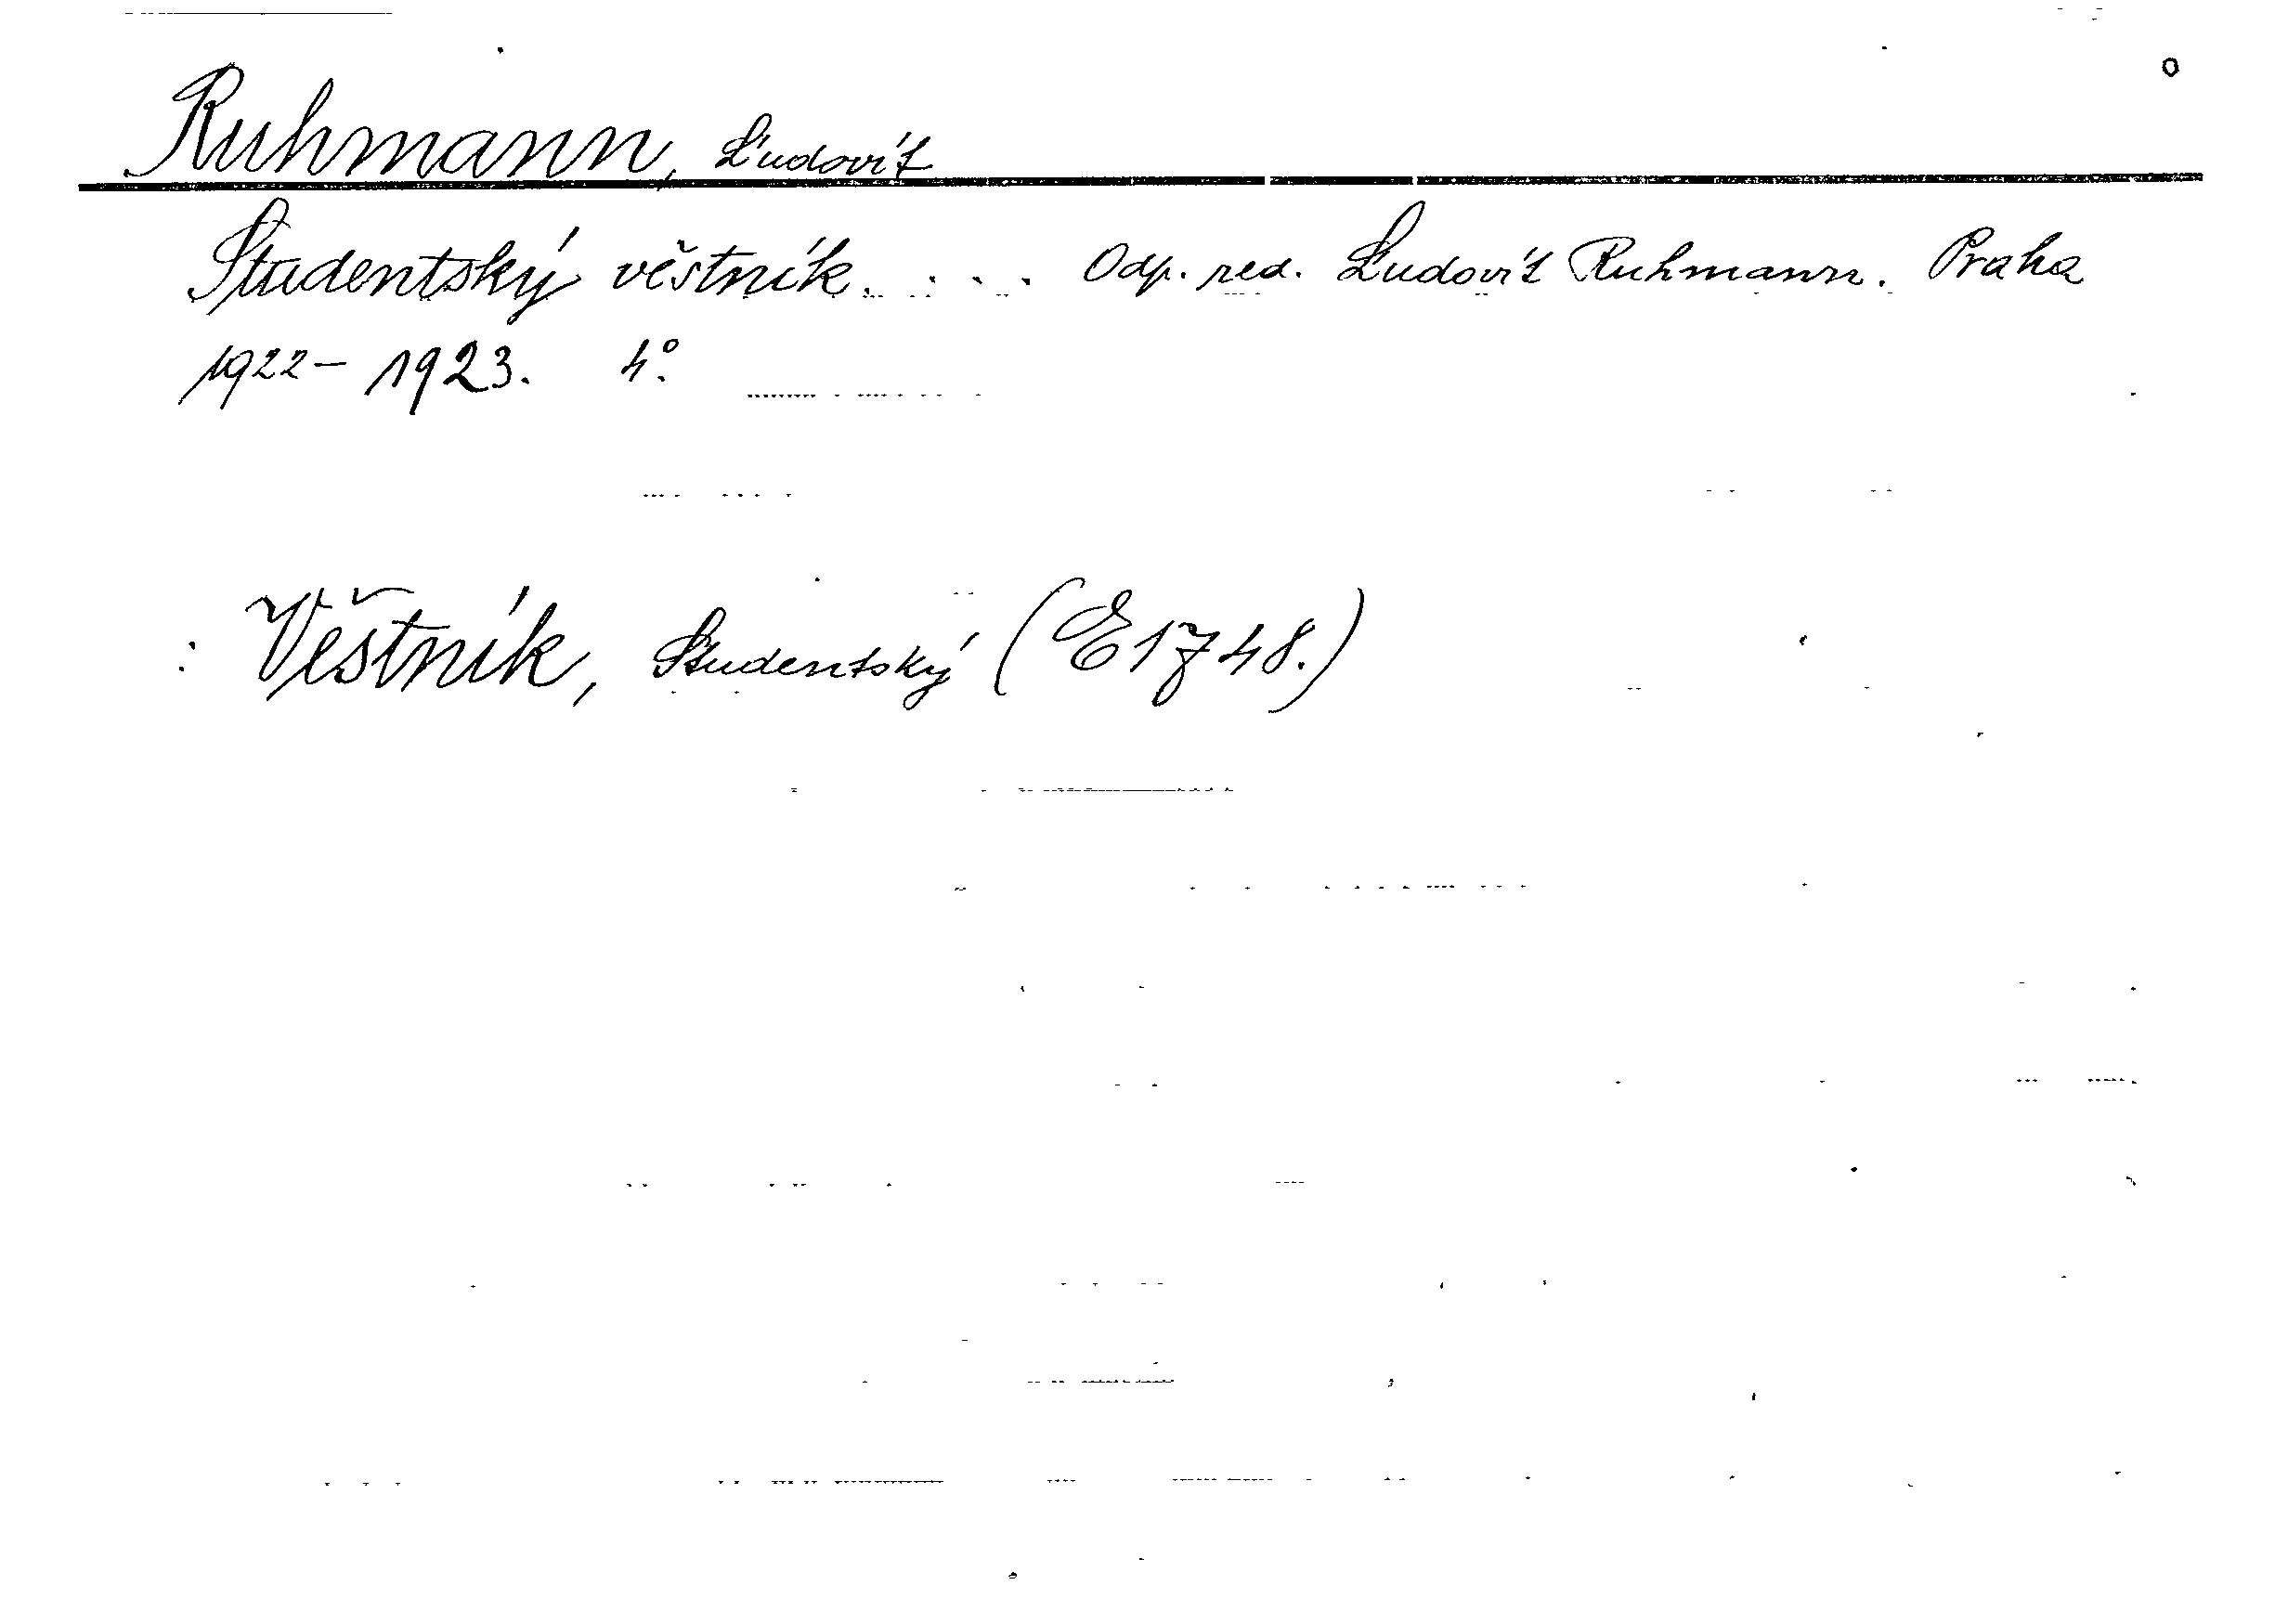 Ruhmann, Ľudovít
Studentský věstník. . . . Odp. red. Ľudovít Ruhmann. Praha
1922–1923. 4°.
: Věstník, Studentský (E 1748.)